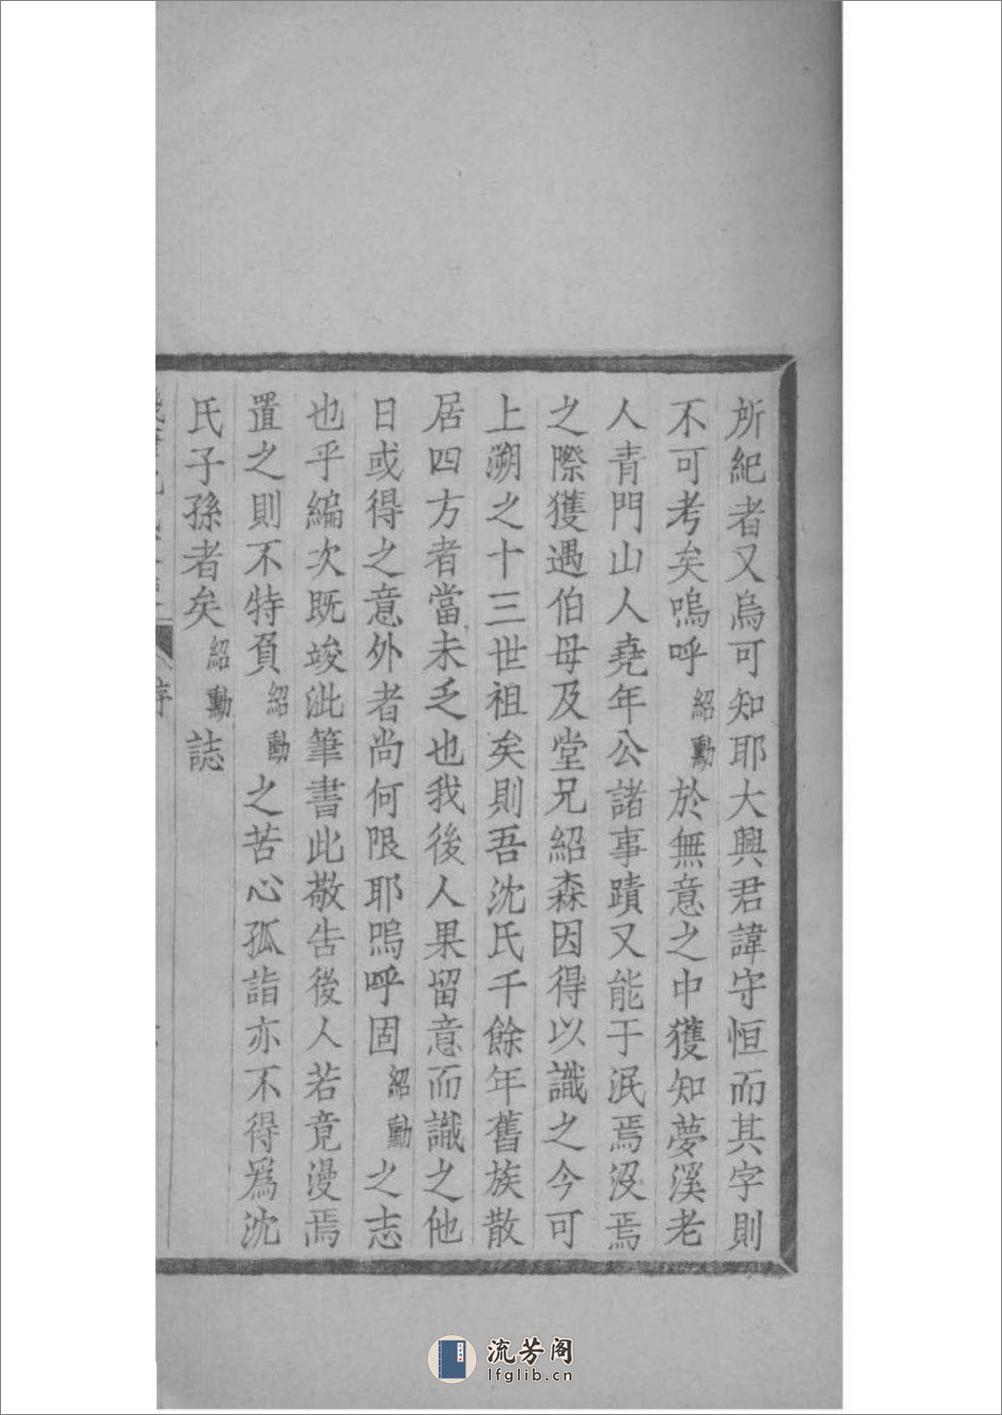 所紀者又烏可知耶大興君諱守恒而其字則
不可考矣嗚呼紹勳於無意之中獲知夢溪老
人青門山人堯年公諸事蹟又能于泯焉沒焉
之際獲遇伯母及堂兄紹森因得以識之今可
上溯之十三世祖矣則吾沈氏千餘年舊族散
居四方者當未乏也我後人果留意而識之他
日或得之意外者尚何限耶嗚呼固紹勳之志
也乎編次既竣泚筆書此敬告後人若竟漫焉
置之則不特負紹勳之苦心孤詣亦不得爲沈
氏子孫者矣紹勳誌
序
流芳阁
lfglib.cn